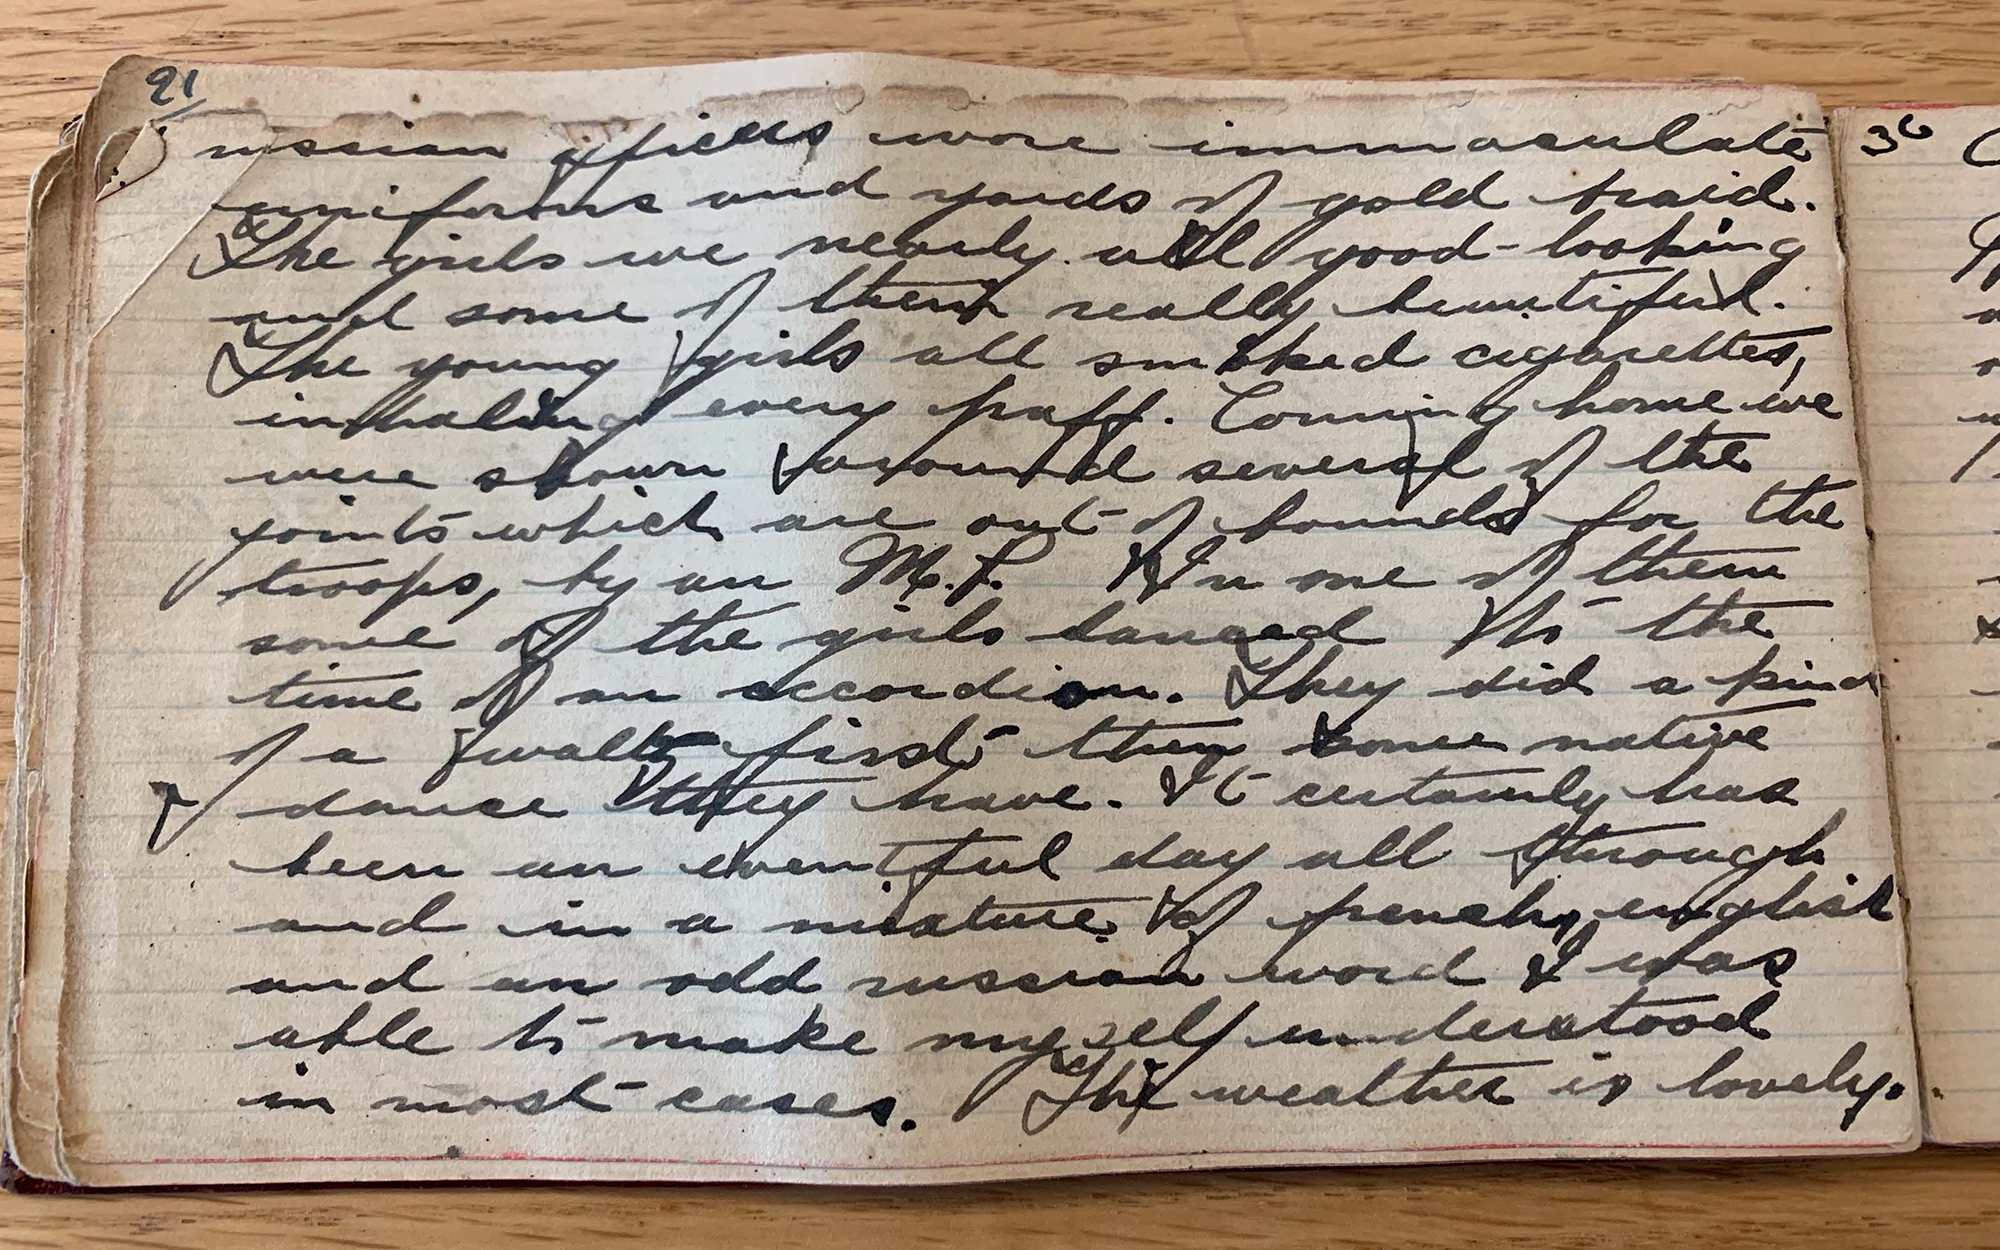 91
russian officers wore immaculate
uniforms and yards of gold braid.
The girls we nearly all good-looking
and some of them really beautiful.
The young girls all smoked cigarettes,
inhaling every puff. Coming home we
were shown around several of the
joints which are out of bounds for the
troops, by an M.P. In one of them
some of the girls danced to the
time of an accordion. They did a kind
of a waltz first then some native
dance they have. It certainly has
been an eventful day all through
and in a mixture of french, english
and an odd russian word I was
able to make myself understood
in most cases. The weather is lovely.
36